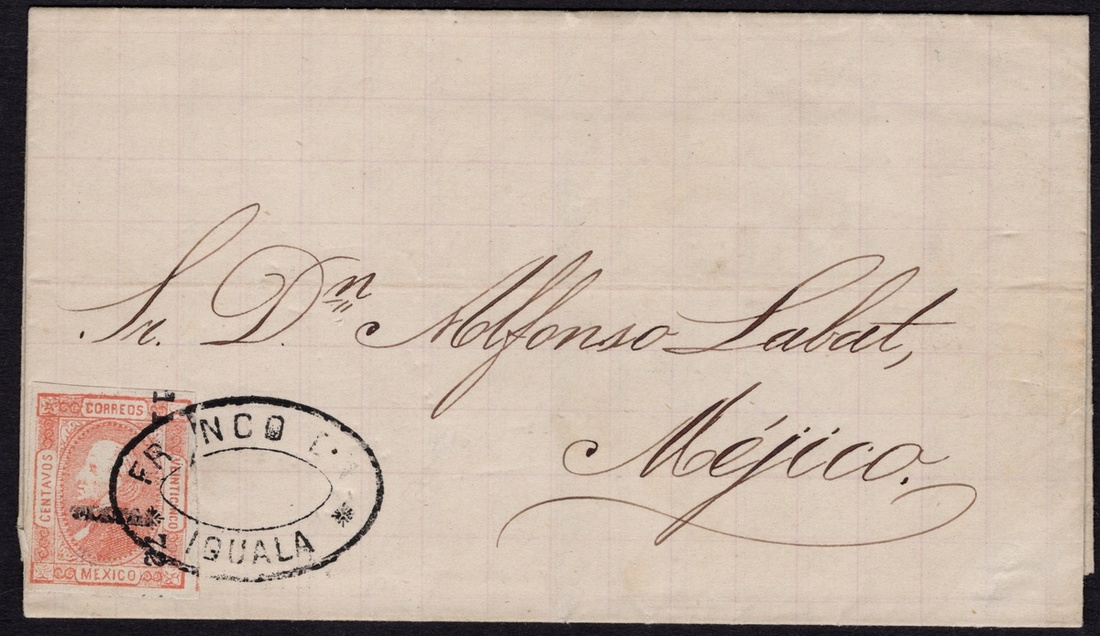 Sr. Dn. Alfonso Labat,
Méjico.
CORREOS
CENTAVOS
VEINTICINCO
MEXICO
FRANCO E.
IGUALA